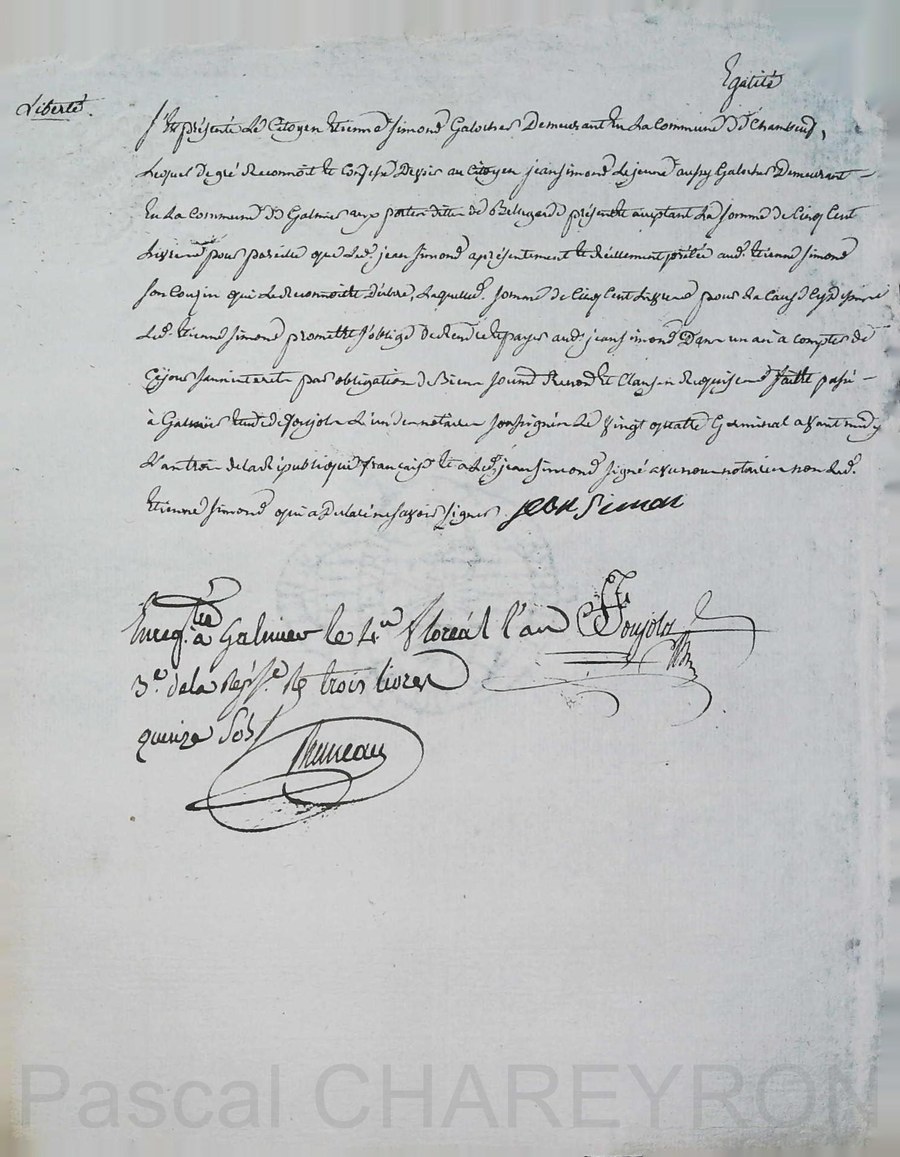 Liberté.
Egalité
S'est présenté Le Citoyen Etienne Simond Galocher Demeurant En La Commune De Chambeuf,
Lequel de gré Reconnoit et Confesse Devoir au Citoyen jean Simond Le jeune aussy Galocher Demeurant
En La Commune De Galmier aux portes ditte de Bellegarde présent et acceptant La somme de Cinq Cent
Livres pour pareille que Led. jean Simond a présentement et Réellement prêtée aud. Etienne Simond
son Cousin qui Le Reconnoit et Déclare, Laquelle d. somme de Cinq Cent Livres pour La Cause
Led. Etienne Simond promet et s'oblige de Rendre et payer aud. jean Simond Dans un an à compter de
Cejour sans interet par obligation de Biens Renond. et Clauses Requises fait et passé
à Galmier Etude de Poujol L'un des notaires soussignés Le vingt quatre Germinal avant midy
L'an trois de la République française et a Led. jean Simond signé avec nous notaires non Led.
Etienne Simond qui a Déclaré ne savoir signer. jean Simon
Enreg.tré à Galmier le 4.e floréal l'an
Poujol
3.e de la Rép. f.se R. trois livres
quinze Sols
Bruneau
Pascal CHAREYRON